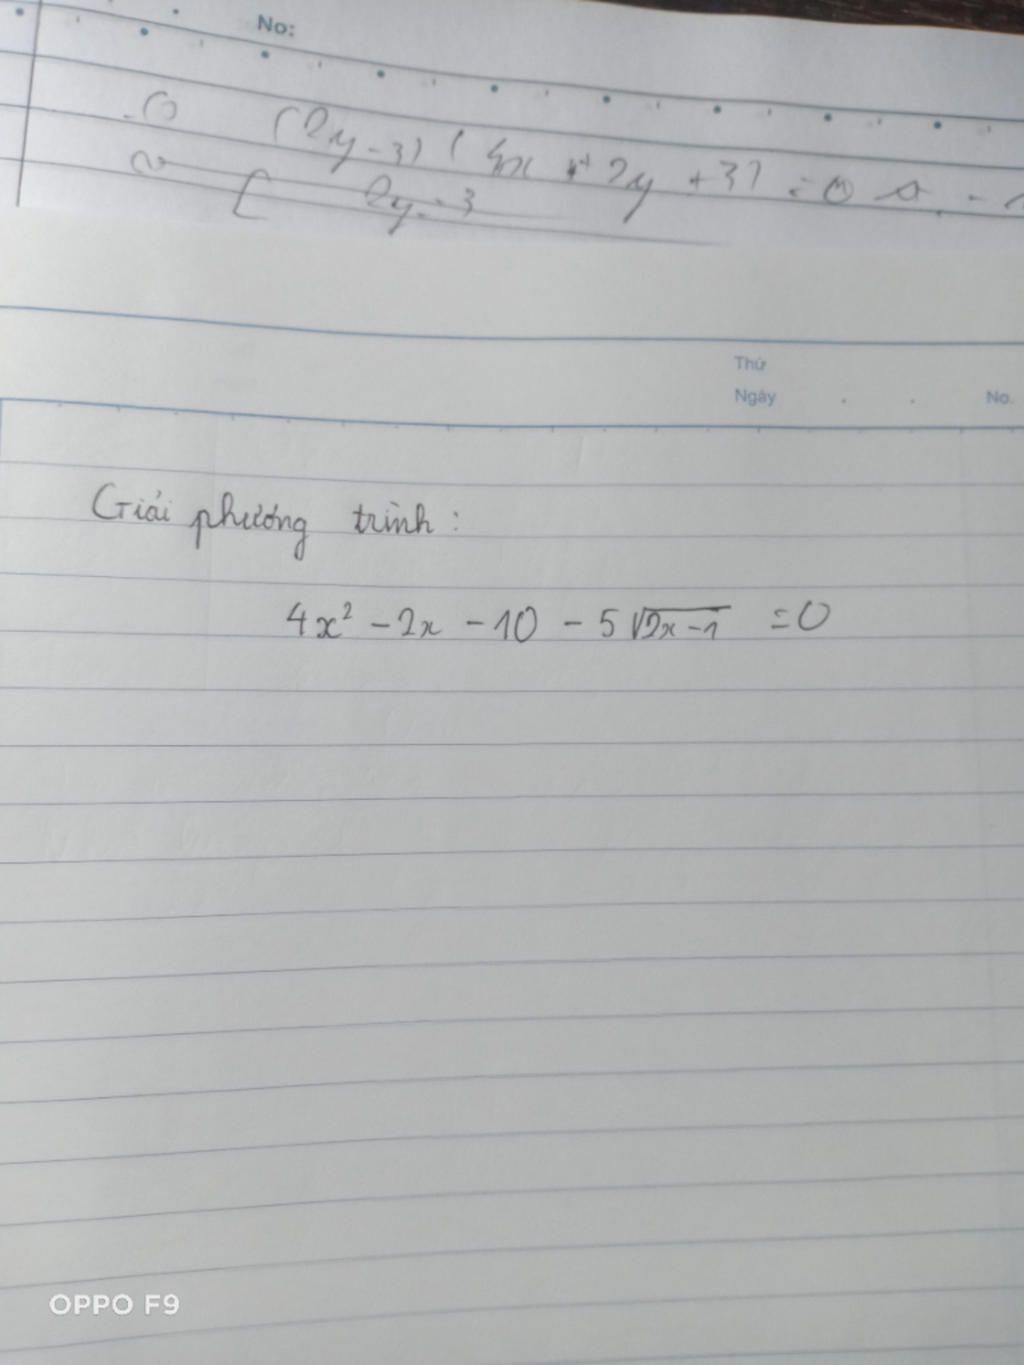 No:
(2y-3)(4x + 2y +3) =0
[ 2y=3
Thứ
Ngày . . No.
Giải phương trình :
4x² - 2x - 10 - 5√2x-1 =0
OPPO F9